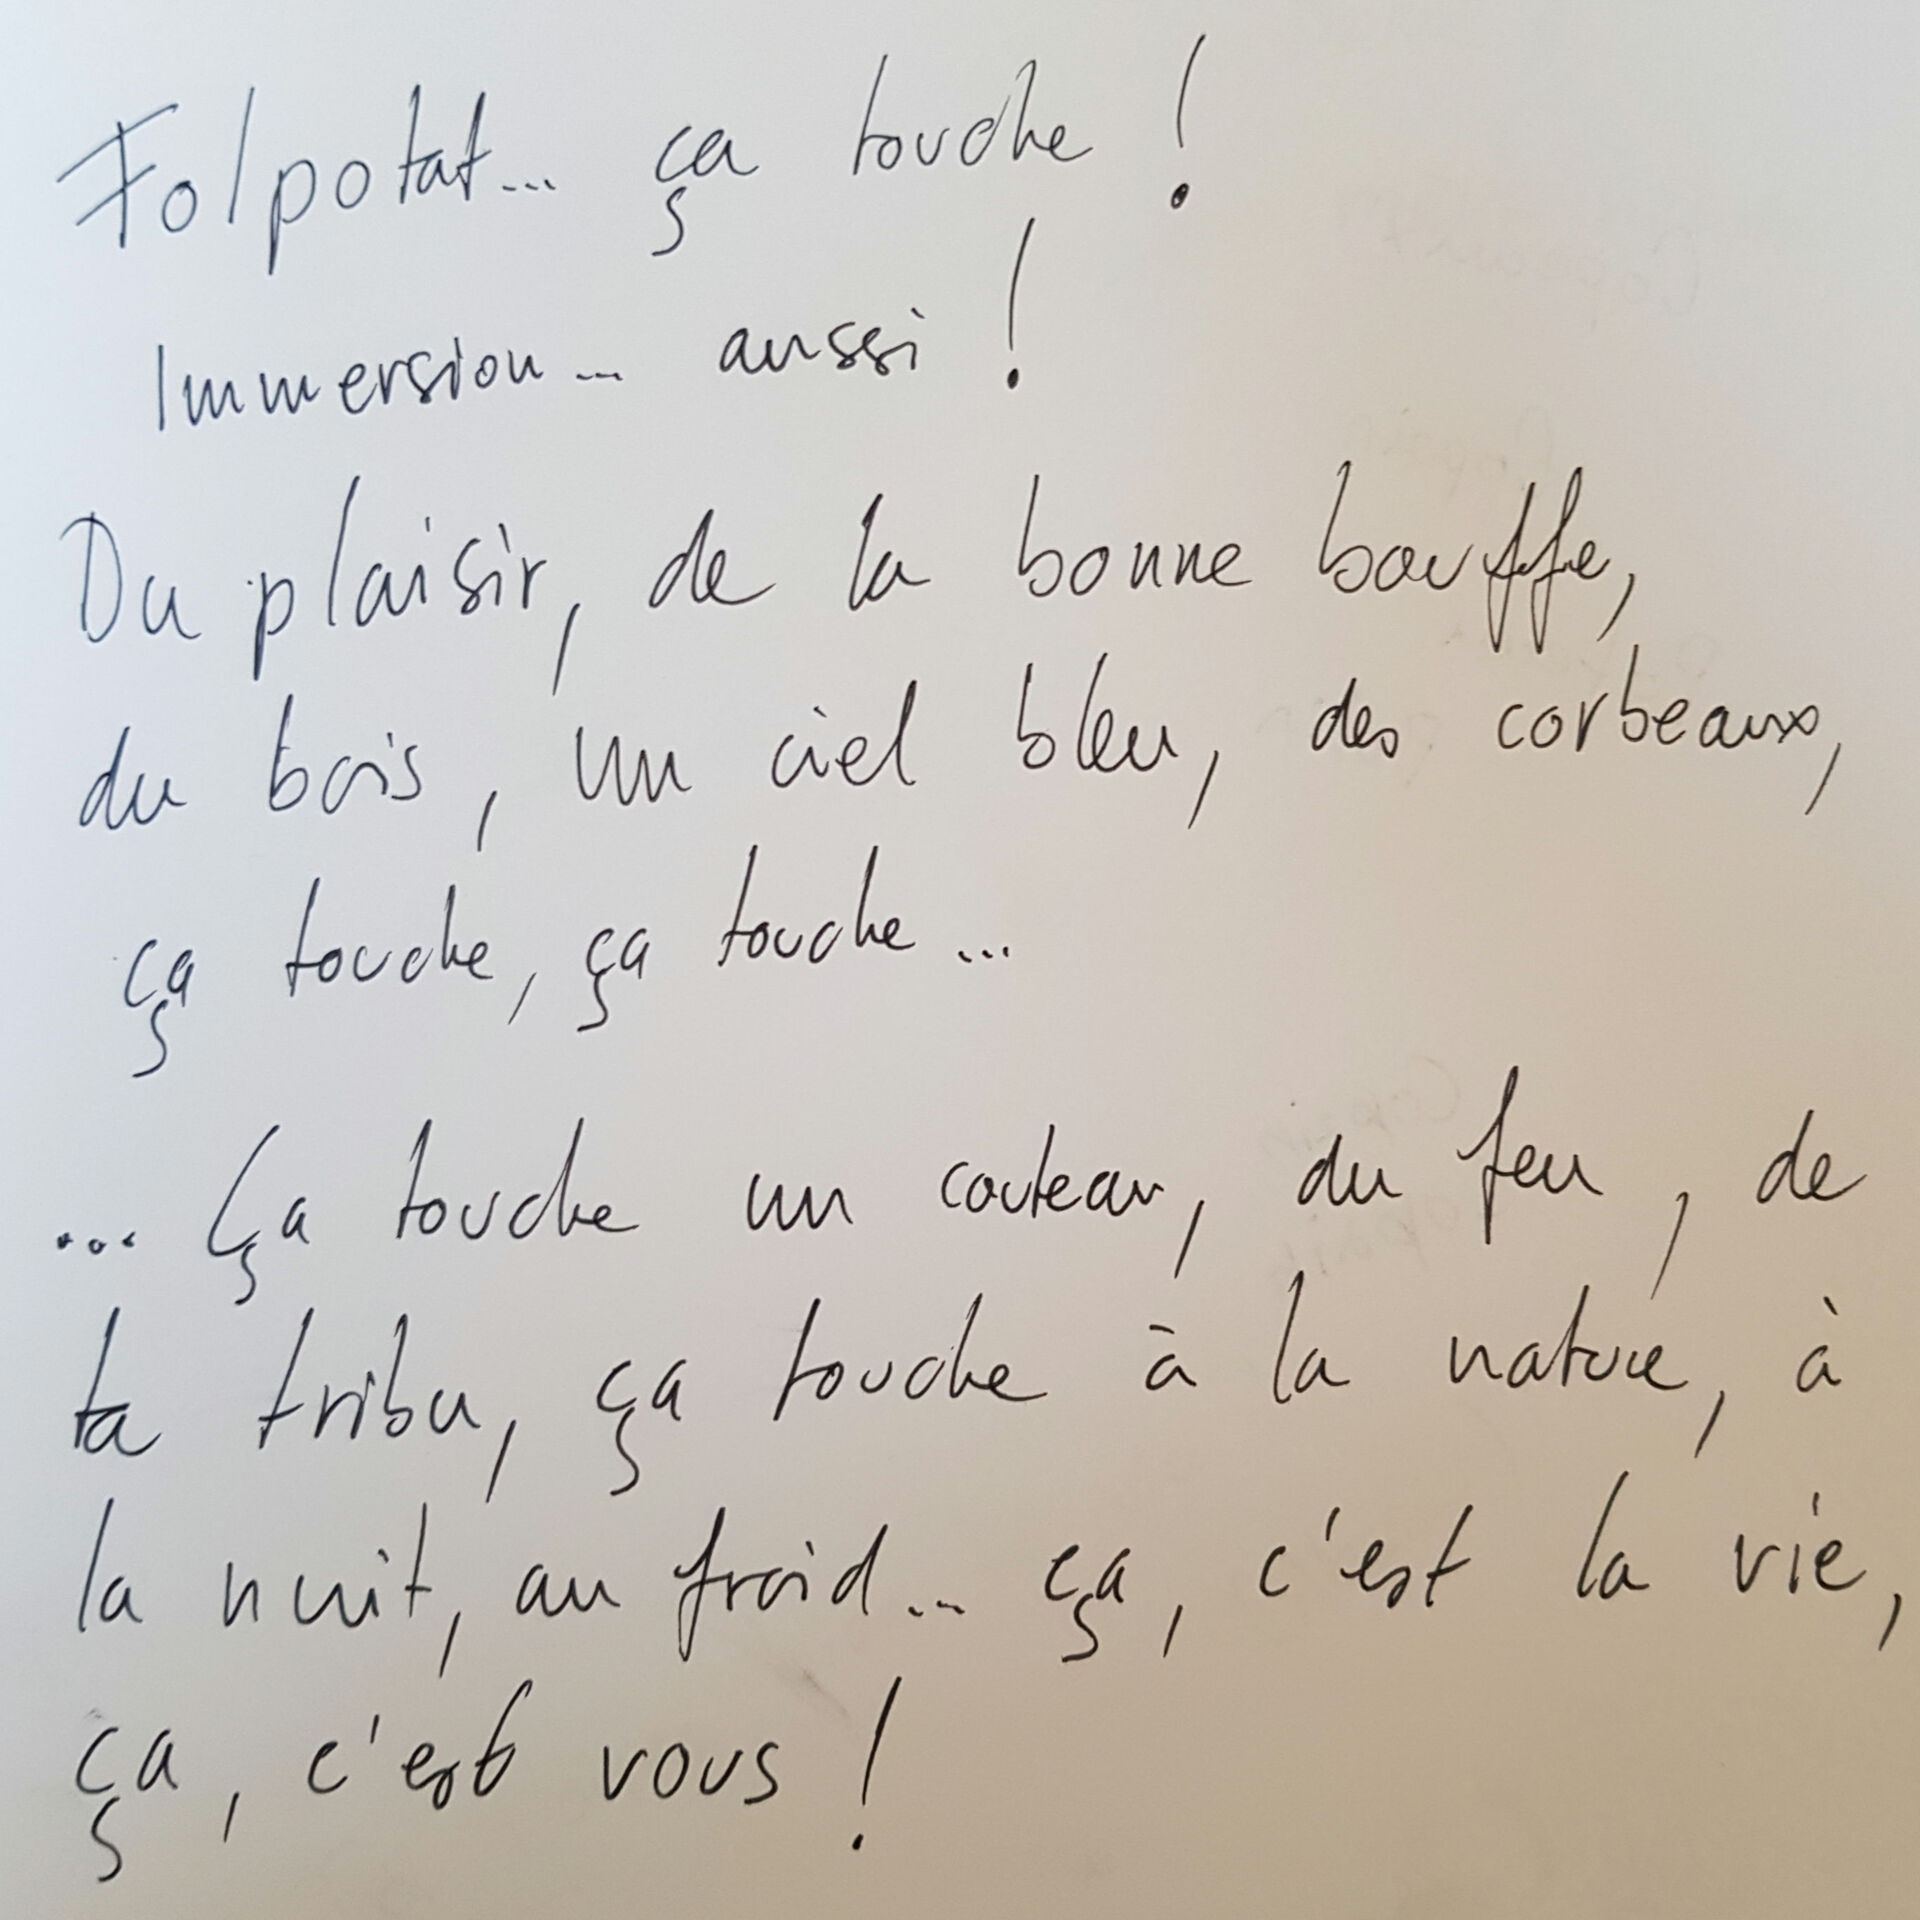 Folpotat... ça touche !
Immersion... aussi !
Du plaisir, de la bonne bouffe,
du bois, un ciel bleu, des corbeaux,
ça touche, ça touche...
... Ça touche un couteau, du feu, de
ta tribu, ça touche à la nature, à
la nuit, au froid... ça, c'est la vie,
ça, c'est vous !